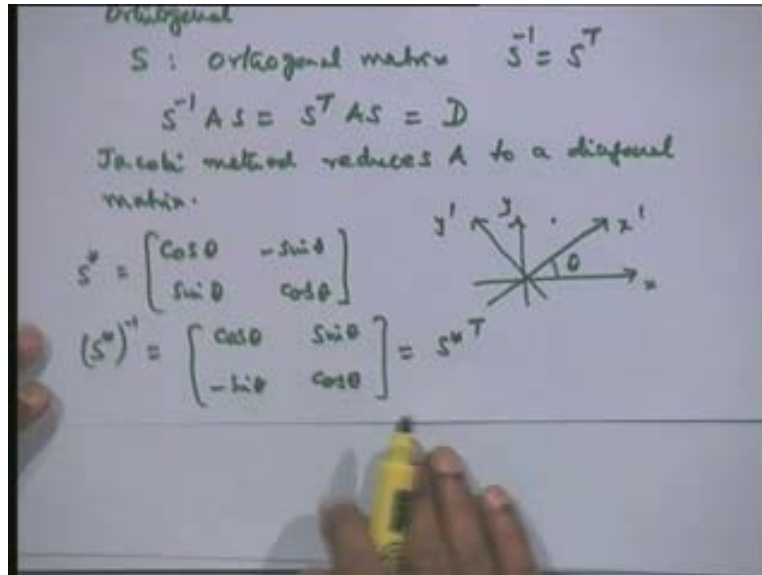 Orthogonal
S : orthogonal matrix S⁻¹ = Sᵀ
S⁻¹ A S = Sᵀ A S = D
Jacobi method reduces A to a diagonal
matrix.
S* = [ cos θ  - sin θ
sin θ  cos θ ]
y' y x' θ x
(S*)⁻¹ = [ cos θ  sin θ
- sin θ  cos θ ] = S*ᵀ